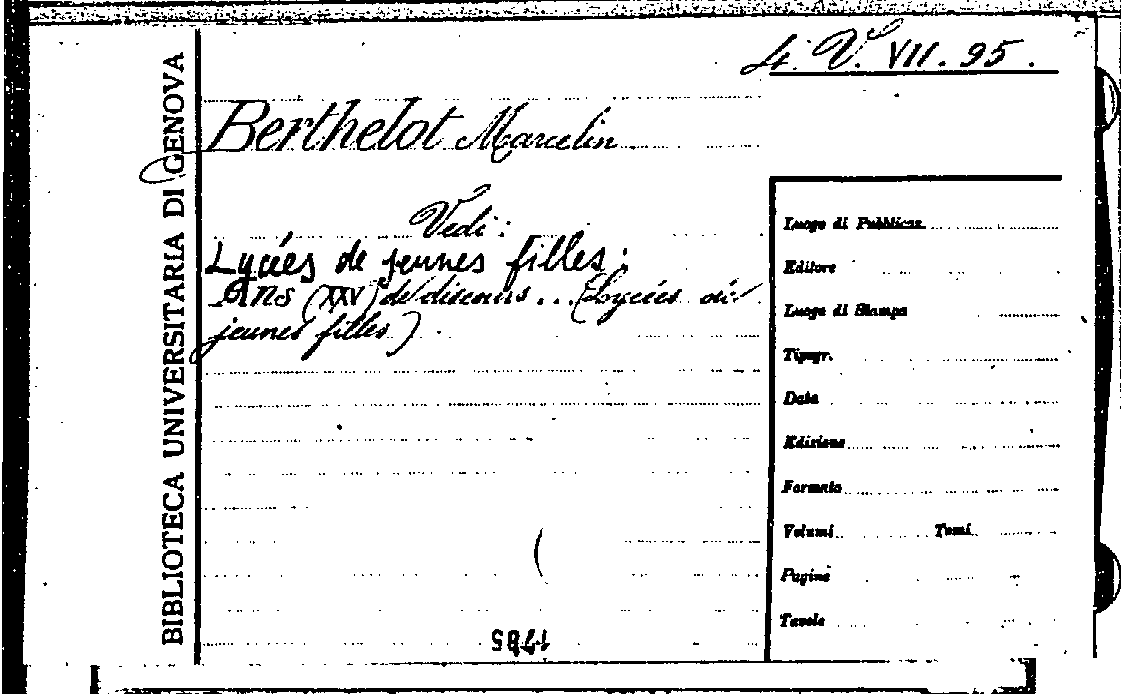 4. V. VII. 95.
BIBLIOTECA UNIVERSITARIA DI GENOVA
Berthelot Marcelin
Vedi:
Lycées de jeunes filles:
Ans (XXV) de discours.. (Lycées de
jeunes filles)
Luogo di Pubblicaz.
Editore
Luogo di Stampa
Tipogr.
Data
Edizione
Formato
Volumi Tomi
Pagine
Tavole
1785